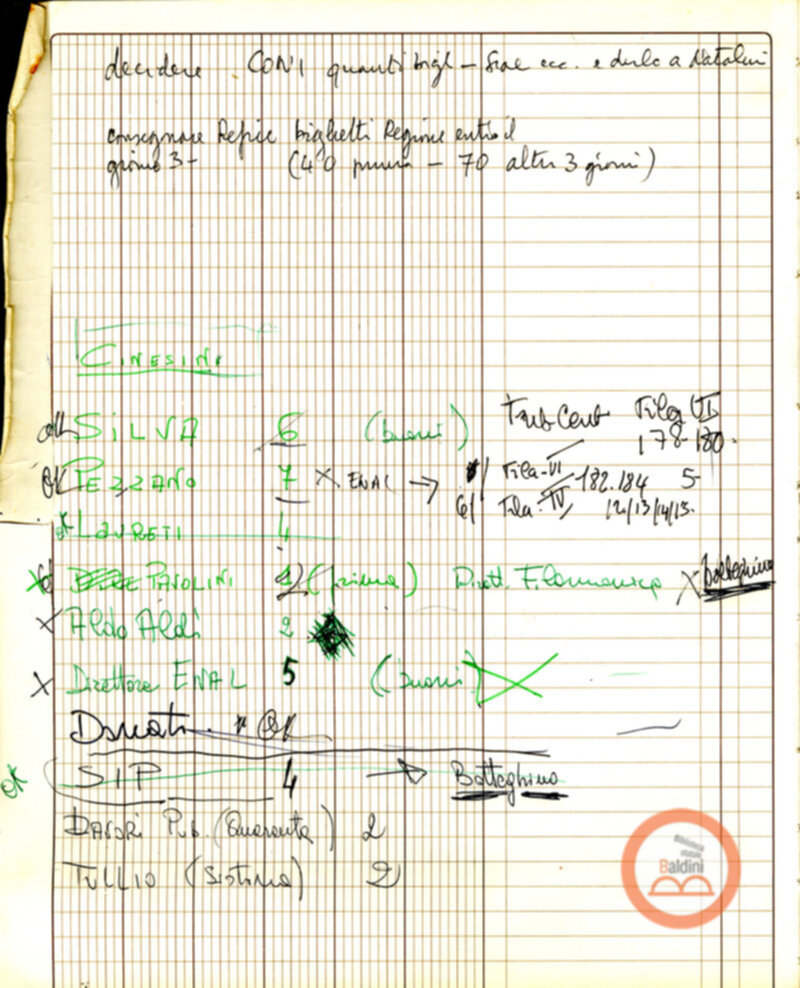 decidere CONI quanti bigl - Siae ecc. e darlo a Natalini
consegnare Refice biglietti Regione entro il
giorno 3 - (40 prima - 70 altri 3 giorni)
CINESINI
ok SILVA 6 (buoni) Trib Cent Fila VI
178-180.
OK PEZZANO 7 X ENAL → Fila VI 182.184 5-
6/ Fila IV 12/13/14/15.
ok LAURETI 4
X PAVOLINI 2 (prima) Dirett. Filarmonica X botteghino
X Aldo Aldi 2
X Direttore ENAL 5 (buoni)
Donati OK
OK SIP 4 → Botteghino
Pub. (Quaranta) 2
TULLIO (Sistina) 2
Biblioteca
statale
Baldini